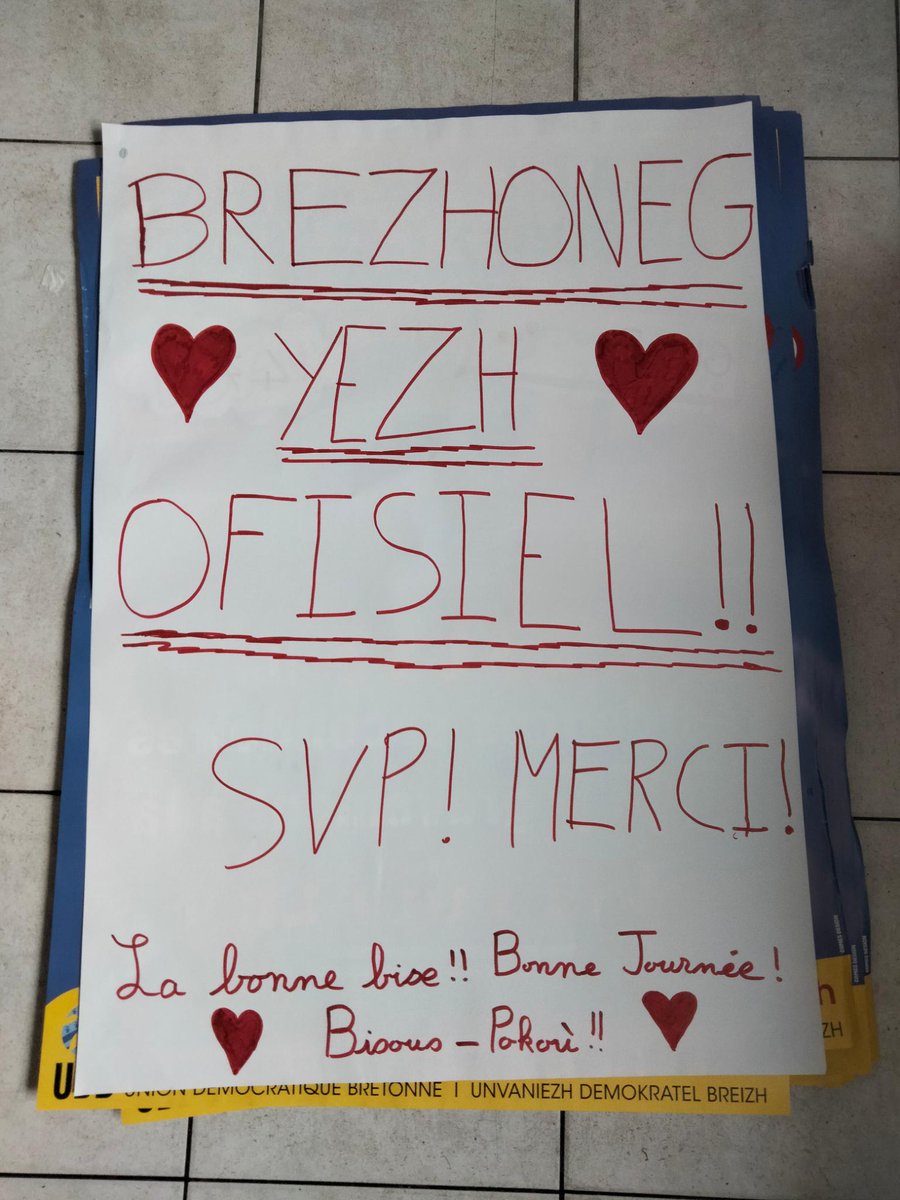 BREZHONEG
YEZH
OFISIEL!!
SVP! MERCI!
La bonne bise!! Bonne Journée!
Bisous - Pokoù!!
UNION DÉMOCRATIQUE BRETONNE | UNVANIEZH DEMOKRATEL BREIZH